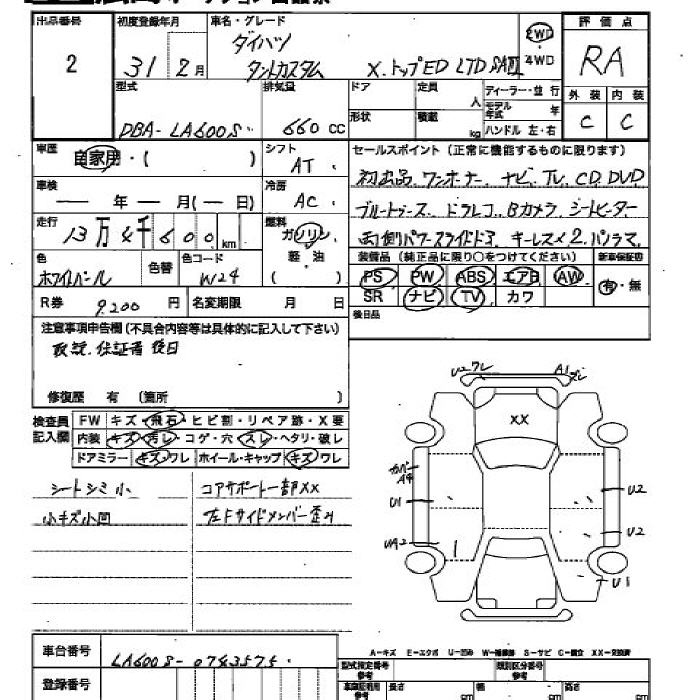 出品番号
2
初度登録年月
31 2月
車名・グレード
ダイハツ
タントカスタム X.トップED LTD SAⅢ
2WD
4WD
評価点
RA
外装 内装
C C
型式
DBA-LA600S
排気量
660 CC
ドア
形状
定員
人
積載
kg
ディーラー・並行
モデル年式 年
ハンドル 左・右
車歴
自家用・( )
シフト
AT
セールスポイント(正常に機能するものに限ります)
初出品.ワンオーナー.ナビ.TV.CD.DVD
ブルートゥース.ドラレコ.Bカメラ.シートヒーター
両側パワースライドドア.キーレス×2.パノラマ.
車検
― 年 ― 月(― 日)
冷房
AC
走行
13万4千600km
燃料
ガソリン
軽・油
( )
色
ホワイトパール
色替
色コード
W24
装備品(純正品に限り○をつけてください)
新車保証書
PS PW ABS エアB AW
SR ナビ TV カワ
有・無
R券 9200円
名変期限 月 日
後日品
注意事項申告欄(不具合内容等は具体的に記入して下さい)
取説.保証書 後日
修復歴 有 (箇所 )
検査員記入欄
FW キズ・飛石・ヒビ割・リペア跡・X要
内装 キズ・汚レ・コゲ・穴・スレ・ヘタリ・破レ
ドアミラー キズ・ワレ ホイール・キャップ キズ・ワレ
シートシミ小
小キズ小凹
コアサポート一部XX
左Fサイドメンバー歪み
U2 ワレ
A1
XX
カバー
A4
U1
UA2
U2
U2
U1
A-キズ E-エクボ U-凹み W-補修跡 S-サビ C-腐食 XX-交換済
車台番号
LA600S-0743575
登録番号
型式指定番号
類別区分番号
長さ cm
幅 cm
高さ cm